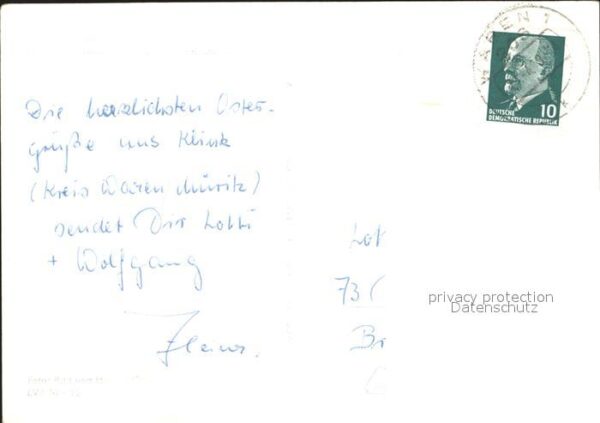 WAREN 1
10
DEUTSCHE
DEMOKRATISCHE REPUBLIK
Die herzlichsten Oster-
grüße aus Klink
(Kreis Waren Müritz)
sendet Dir Lotti
+ Wolfgang
Lot
73
privacy protection
Datenschutz